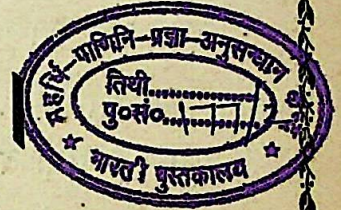 महर्षि–पाणिनि–प्रज्ञा–अनुसन्धान
तिथी..............
पु०सं०..............
भारती पुस्तकालय